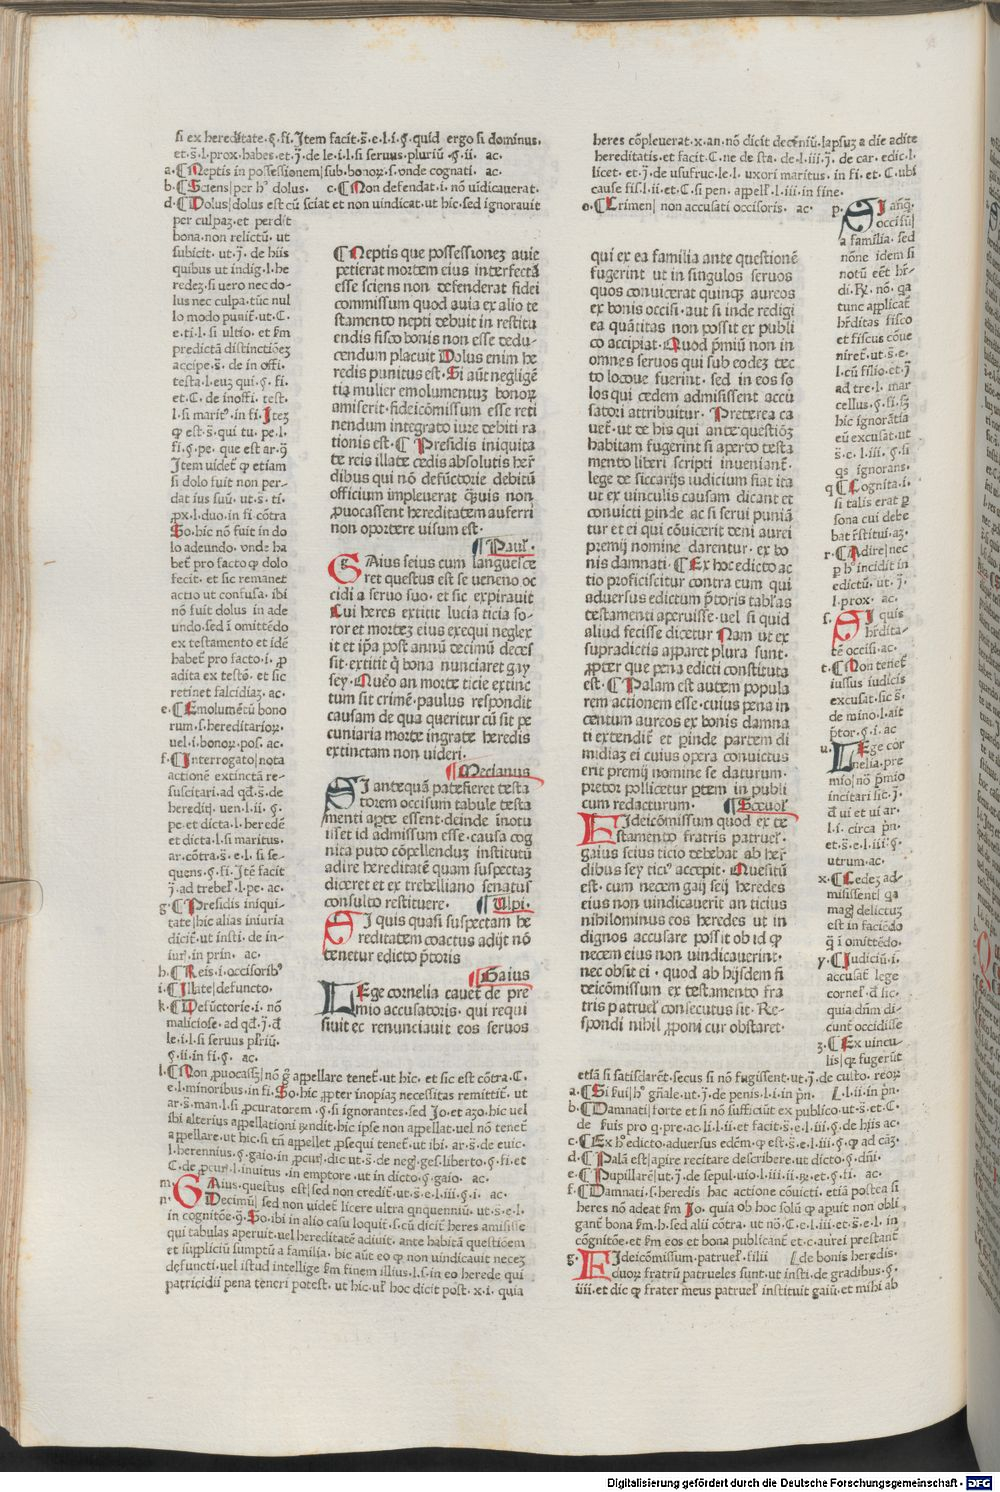 si ex hereditate·§·fi·Item facit·s̄·e·l·i·§·quid ergo si dominus·
et·s̄·l·prox·habes·et·j̄·de le·i·l·si seruus pluriū·§·ii· ac·
a·¶Neptis in possessionem|sub·bonoꝝ·s·vnde cognati· ac·
b·¶Sciens|per hͦ dolus· c·¶Non defendat·i·nō uidicauerat·
d·¶Dolus|dolus est cū sciat et non vindicat·ut hic·sed ignorauit
per culpaꝫ·et perdit
bona·non relictū·ut
subicit·ut·j̄·de hiis
quibus ut indig·l·he
redeꝫ·si uero nec do-
lus nec culpa·tūc nul
lo modo punit̄·ut·C·
e·ti·l·si ultio·et s̄m
predictā distinctiōeꝫ
accipe·s̄·de in offi·
testa·l·euꝫ qui·§·fi·
et·C·de inoffi·test·
l·si maritꝰ·in fi·Iteꝫ
ꝙ est·s̄·qui tu·pe·l·
fi·§·pe·que est ar·ꝯ̄
Item uidet̄ ꝙ etiam
si dolo fuit non per-
dat ius suū·ut·s̄·ti·
ꝓx·l·duo·in fi·cōtra
So·hic nō fuit in do
lo adeundo·vnde ha
bet̄ pro facto ꝙ dolo
fecit·et sic remanet
actio ut confusa·ibi
nō fuit dolus in ade
undo·sed ī omittēdo
ex testamento et idē
habet̄ pro facto·i·ꝓ
adita ex testō·et sic
retinet falcidiaꝫ·ac·
e·¶Emolumētū bono
rum·s·hereditarioꝝ·
uel·i·bonoꝝ·pos·ac·
f·¶Interrogato|nota
actionē extinctā re-
suscitari·ad qd̄·s̄·de
heredit̄·uen·l·ii·§·
pe·et dicta·l·heredē
et dicta·l·si maritus·
ar·cōtra·s̄·e·l·si se-
quens·§·fi·Itē facit
j̄·ad trebel̄·l·pe·ac·
g·¶Presidis iniqui-
tate|hic alias iniuria
dicit̄·ut insti·de in-
iur̄·in prin· ac·
h·¶Reis·i·occisoribꝰ
i·¶Illate|defuncto·
k·¶Defūctorie·i·nō
maliciose·ad qd̄·j̄·d̄
le·i·l·si seruus pl̄riū·
§·ii·in fi·§· ac·
l·¶Non ꝓuocass̄|nō g̅ appellare tenet̄·ut hic·et sic est cōtra·C·
e·l·minoribus·in fi·So·hic ꝓpter inopiaꝫ necessitas remittit̄·ut
ar·s̄·man·l·si ꝓcuratorem·§·si ignorantes·sed Io·et aꝫo·hic uel
ibi alterius appellationi ꝓndit·hic ipse non appellat·uel nō tenet̄
appellare·ut hic·si tn̄ appellet ꝓsequi tenet̄·ut ibi·ar·s̄·de euic·
l·herennius·§·gaio·in ꝓcur̄·dic ut·s̄·de neg̅·ges·liberto·§·fi·et
C·de ꝓcur̄·l·inuitus·in emptore·ut in dicto·§·gaio· ac·
m·GAius·questus est|sed non credit̄·ut·s̄·e·l·iii·§·i· ac·
n·¶Decimū| sed non videt̄ licere ultra qnquenniū·ut·s̄·e·l·
in cognitōe·ꝯ̄·So·ibi in alio casu loquit̄·s·cū dicit̄ heres amisisse
qui tabulas aperuit·uel hereditatē adiuit·ante habitā questiōem
et supliciū sumptū a familia·hic aūt eo ꝙ non uindicauit neceꝫ
defuncti·uel istud intellige s̄m finem illius·l·s·in eo herede qui
patricidii pena teneri potest·ut hic·ul̄ hoc dicit post·x·i·quia
¶Neptis que possessioneꝫ auie
petierat mortem eius interfectā
esse sciens non defenderat fidei
commissum quod auia ex alio te
stamento nepti debuit in restitu
endis fisco bonis non esse dedu-
cendum placuit Dolus enim he
redis punitus est·Si aūt negligē
tia mulier emolumentuꝫ bonoꝝ
amiserit·fideicōmissum esse reti
nendum integrato iure debiti ra
tionis est·¶Presidis iniquita
te reis illate cedis absolutis her̄
dibus qui nō defūctorie debitū
officium impleuerat q̄uis non
ꝓuocassent hereditatem auferri
non oportere uisum est·
¶Paul̄·
GAius seius cum languesce
ret questus est se ueneno oc
cidi a seruo suo·et sic expirauit
Cui heres extitit lucia ticia so-
ror et morteꝫ eius exequi neglex
it et ip̄a post annū decimū deces
sit·extitit q̄ bona nunciaret gay
sey·Queō an morte ticie extinc
tum sit crimē·paulus respondit
causam de qua queritur cū sit pe
cuniaria morte ingrate heredis
extinctam non uideri·
¶Mecianus
SI antequā patefieret testa
torem occisum tabule testa
menti aꝑte essent·deinde īnotu
isset id admissum esse·causa cog
nita puto cōpellenduꝫ institutū
adire hereditatē quam suspectaꝫ
diceret et ex trebelliano senatus
consulto restituere· ¶Ulpi·
SI quis quasi suspectam he
reditatem coactus adijt nō
tenetur edicto p̄toris
¶Gaius
LEge cornelia cauet̄ de pre
mio accusatoris·qui requi
siuit ec renunciauit eos seruos
heres cōpleuerat·x·an·nō dicit decēniū·lapsuꝫ a die adite
hereditatis·et facit·C·ne de sta·de·l·iii·j̄·de car·edic·l·
licet·et·j̄·de usufruc·le·l·uxori maritus·in fi·et·C·ubi
cause fis·l·ii·et·C·si pen·appell̄·l·iii·in fine·
o·¶Crimen| non accusati occisoris· ac·
qui ex ea familia ante questionē
fugerint ut in singulos seruos
quos conuicerat quinqꝫ aureos
ex bonis occisi·aut si inde redigi
ea quātitas non possit ex publi
co accipiat·Quod p̄miū non in
omnes seruos qui sub eodeꝫ tec
to locoue fuerint·sed in eos so
los qui cedem admisissent accu
satori attribuitur·Preterea ca
uet̄·ut de his qui ante questiōꝫ
habitam fugerint si aperto testa
mento liberi scripti inueniant̄·
lege de siccarijs iudicium fiat ita
ut ex vinculis causam dicant et
conuicti ꝑinde ac si serui puniā
tur et ei qui cōuicerit deni aurei
premij nomine darentur·ex bo
nis damnati·¶Ex hoc edicto ac
tio proficiscitur contra eum qui
aduersus edictum p̄toris tab̄las
testamenti aperuisse·uel si quid
aliud fecisse dicetur Nam ut ex
supradictis aꝑparet plura sunt·
ꝓpter que pena edicti constituta
est·¶Palam est autem popula
rem actionem esse·cuius pena in
centum aureos ex bonis damna
ti extendit̄ et ꝑinde partem di
midiaꝫ ei cuius opera conuictus
erit premij nomine se daturum·
pretor pollicetur ꝑtem in publi
cum redacturum· ¶Sceuol̄·
FIdeicōmissum quod ex te
stamento fratris patruel̄·
gaius seius ticio debebat ab her̄
dibus sey ticiꝰ accepit·Quesitū
est·cum necem gaij seij heredes
eius non uindicauerit an ticius
nihilominus eos heredes ut in
dignos accusare possit ob id ꝙ
necem eius non uindicauerint·
nec obsit ei·quod ab hijsdem fi
deicōmissum ex testamento fra
tris patruel̄ consecutus sit·Re-
spondi nihil ꝓponi cur obstaret·
p· SI anq̄·
occisū|
a familia·sed
nōne idem si
notū eēt hr̄-
di·℞·nō·qa
tunc applicat̄
hr̄ditas fisco
et fiscus cōue
niret̄·ut·s̄·e·
l·cū filio·et·j̄
ad tre·l·mar
cellus·§·fi·sꝫ
hic ignorātia
eū excusat·ut
s̄·e·l·iii·§·si
qs ignorans·
q ¶Cognita·i·
si talis erat ꝑ
sona cui debe
bat r̄stitui·aꝫ·
r·¶Adire|nec
ꝑ hͦ incidit in
edictū·ut·j̄·
l·prox· ac·
s· SI quis
hr̄dita-
tē occisi·ac·
t·¶Non tenet̄
iussus iudicis
excusat·sic·s̄·
de mino·l·ait
p̄tor·§·i·ac
u· LEge cor
nelia·pre
mio|nō p̄mio
incitari sic·j̄·
d̄ ui et ui ar·
l·i·circa p̄n·
et·s̄·e·l·iii·§·
utrum·ac·
x·¶Cedeꝫ ad-
misissent| qa
mag̅ delictuꝫ
est in faciēdo
q̄ ī omittēdo·
y·¶Iudiciū·i·
accusat̄ lege
cornel̄·d̄ sic·
quia dn̄m di-
cunt̄ occidisse
z·¶Ex vincu-
lis|qꝛ fugerūt
etiā si satisdarēt·secus si nō fugissent·ut·j̄·de custo·reoꝝ
a·¶Si kui|hͦ gn̄ale·ut·j̄·de penis·l·i·in p̄n· [l·ii·in p̄n·
b·¶Damnati|forte et si nō sufficiūt ex publico·ut·s̄·et·C·
de fuis pro q·pre·ac·li·l·ii·et facit·s̄·e·l·iii·§·de hijs ac·
c·¶Ex hͦ edicto·aduersus edēm·ꝙ est·s̄·e·l·iii·§·ꝙ ad cāꝫ·
d·¶Palā est|aꝑire recitare describere·ut dicto·§·dn̄i·
e·¶Pupillarē|ut·j̄·de sepul·uio·l·iii·ii·℞·et·§·fi· ac·
f·¶Damnati·s·heredis hac actione cōuicti·etiā postea si
heres nō adeat s̄m Io·quia ob hoc solū ꝙ aꝑuit non obli
gant̄ bona s̄m·h·sed alii cōtra·ut nō·C·e·l·iii·et·s̄·e·l·in
cōgnitōe·et s̄m eos et bona publicant̄ et·c·aurei prestant̄
g· FIdeicōmissum·patruel̄·filii [de bonis heredis·
duoꝝ fratrū patrueles sunt·ut insti·de gradibus·§·
iiii·et dic ꝙ frater meus patruel̄ instituit gaiū·et mihi ab
Digitalisierung gefördert durch die Deutsche Forschungsgemeinschaft - DFG